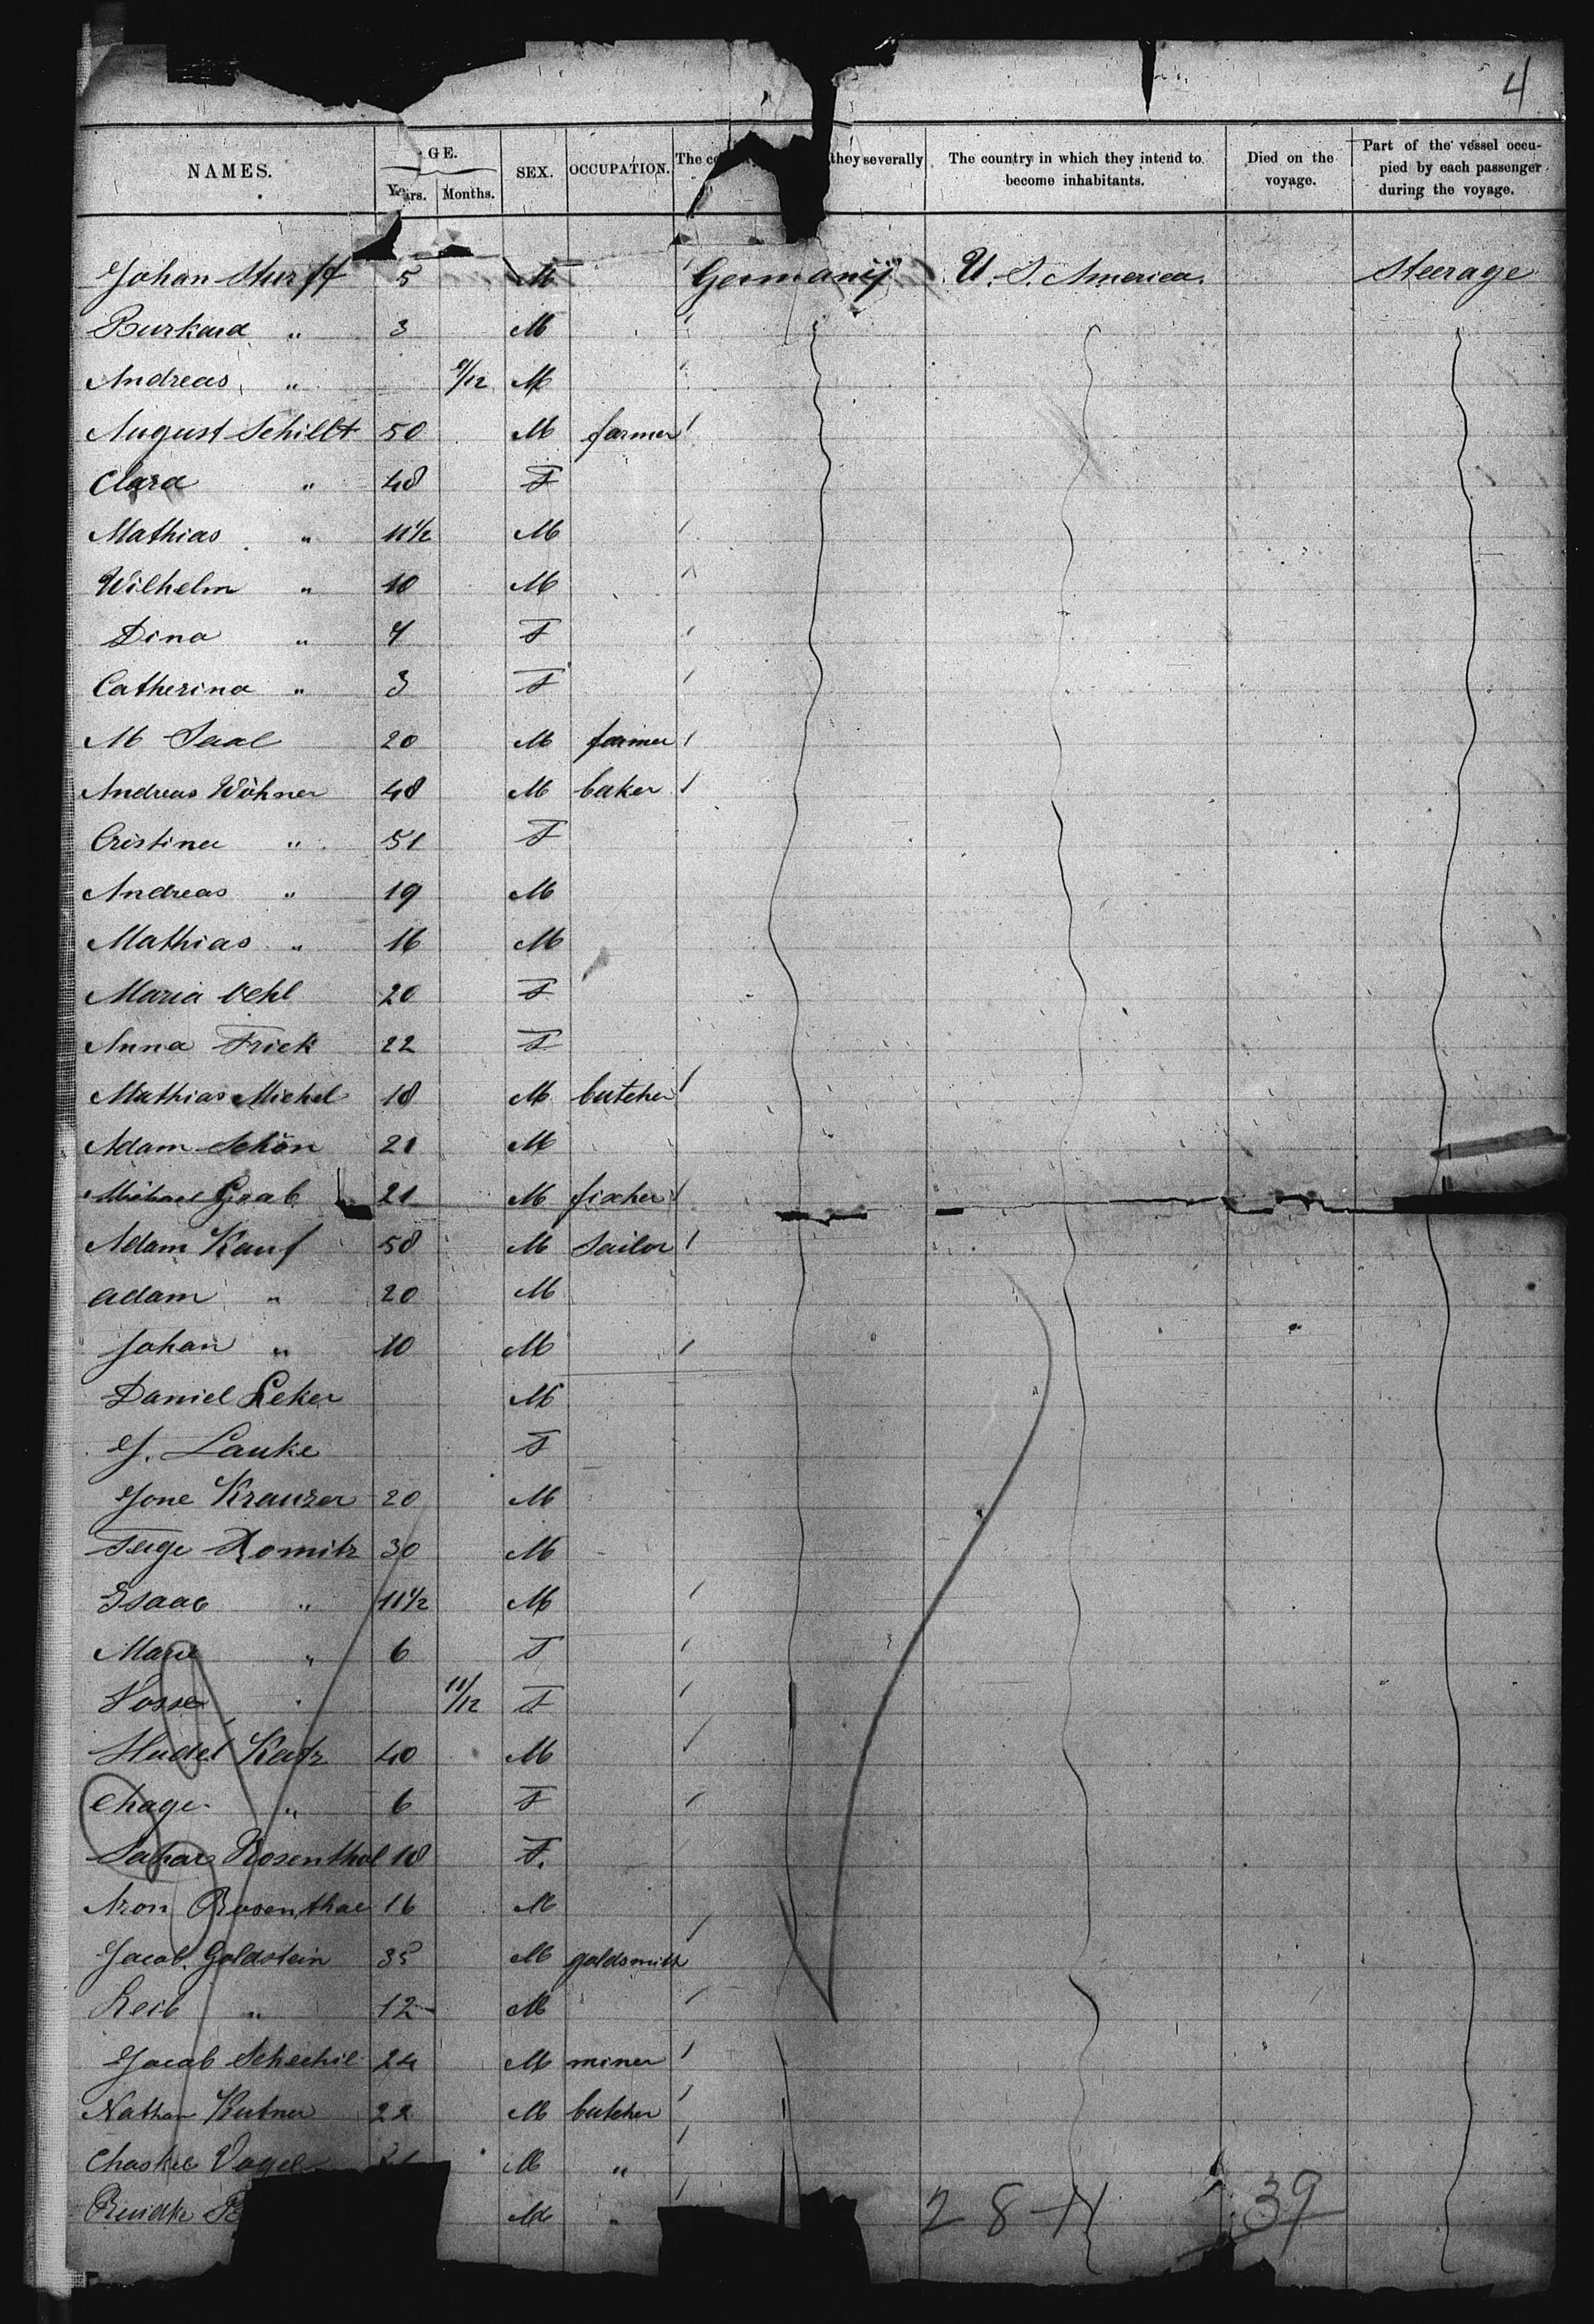 4
NAMES. GE. SEX. OCCUPATION. The co they severally The country in which they intend to become inhabitants. Died on the voyage. Part of the vessel occupied by each passenger during the voyage.
Years. Months.
Johan 5 M Germany U. S. America. Steerage
Burkard " 3 M
Andreas " /12 M
August Schillt 50 M farmer
Clara " 48 F
Mathias " 11 1/2 M
Wilhelm " 10 M
Dina " 4 F
Catherina " 3 F
M Saal 20 M farmer
Andreas Wöhner 48 M baker
Cristina " 51 F
Andreas " 19 M
Mathias " 16 M
Maria 20 F
Anna Frick 22 F
Mathias Michel 18 M butcher
Adam Schön 21 M
Michael Grab 21 M fischer
Adam Kauf 58 M Sailor
Adam " 20 M
Johan " 10 M
Daniel Leker M
J. Lauke F
Jone Krauzer 20 M
Feige Domitz 30 M
Isaac " 11 1/2 M
Marie " 6 F
11/12 F
Hudel Katz 40 M
Chage " 6 F
Rosenthal 18 F.
Aron Rosenthal 16 M
Jacob Goldstein 35 M goldsmith
Leib " 12 M
Jacob Schechil 24 M miner
Nathan Kutner 22 M butcher
Chaskel Vogel M "
M "
28-11 39